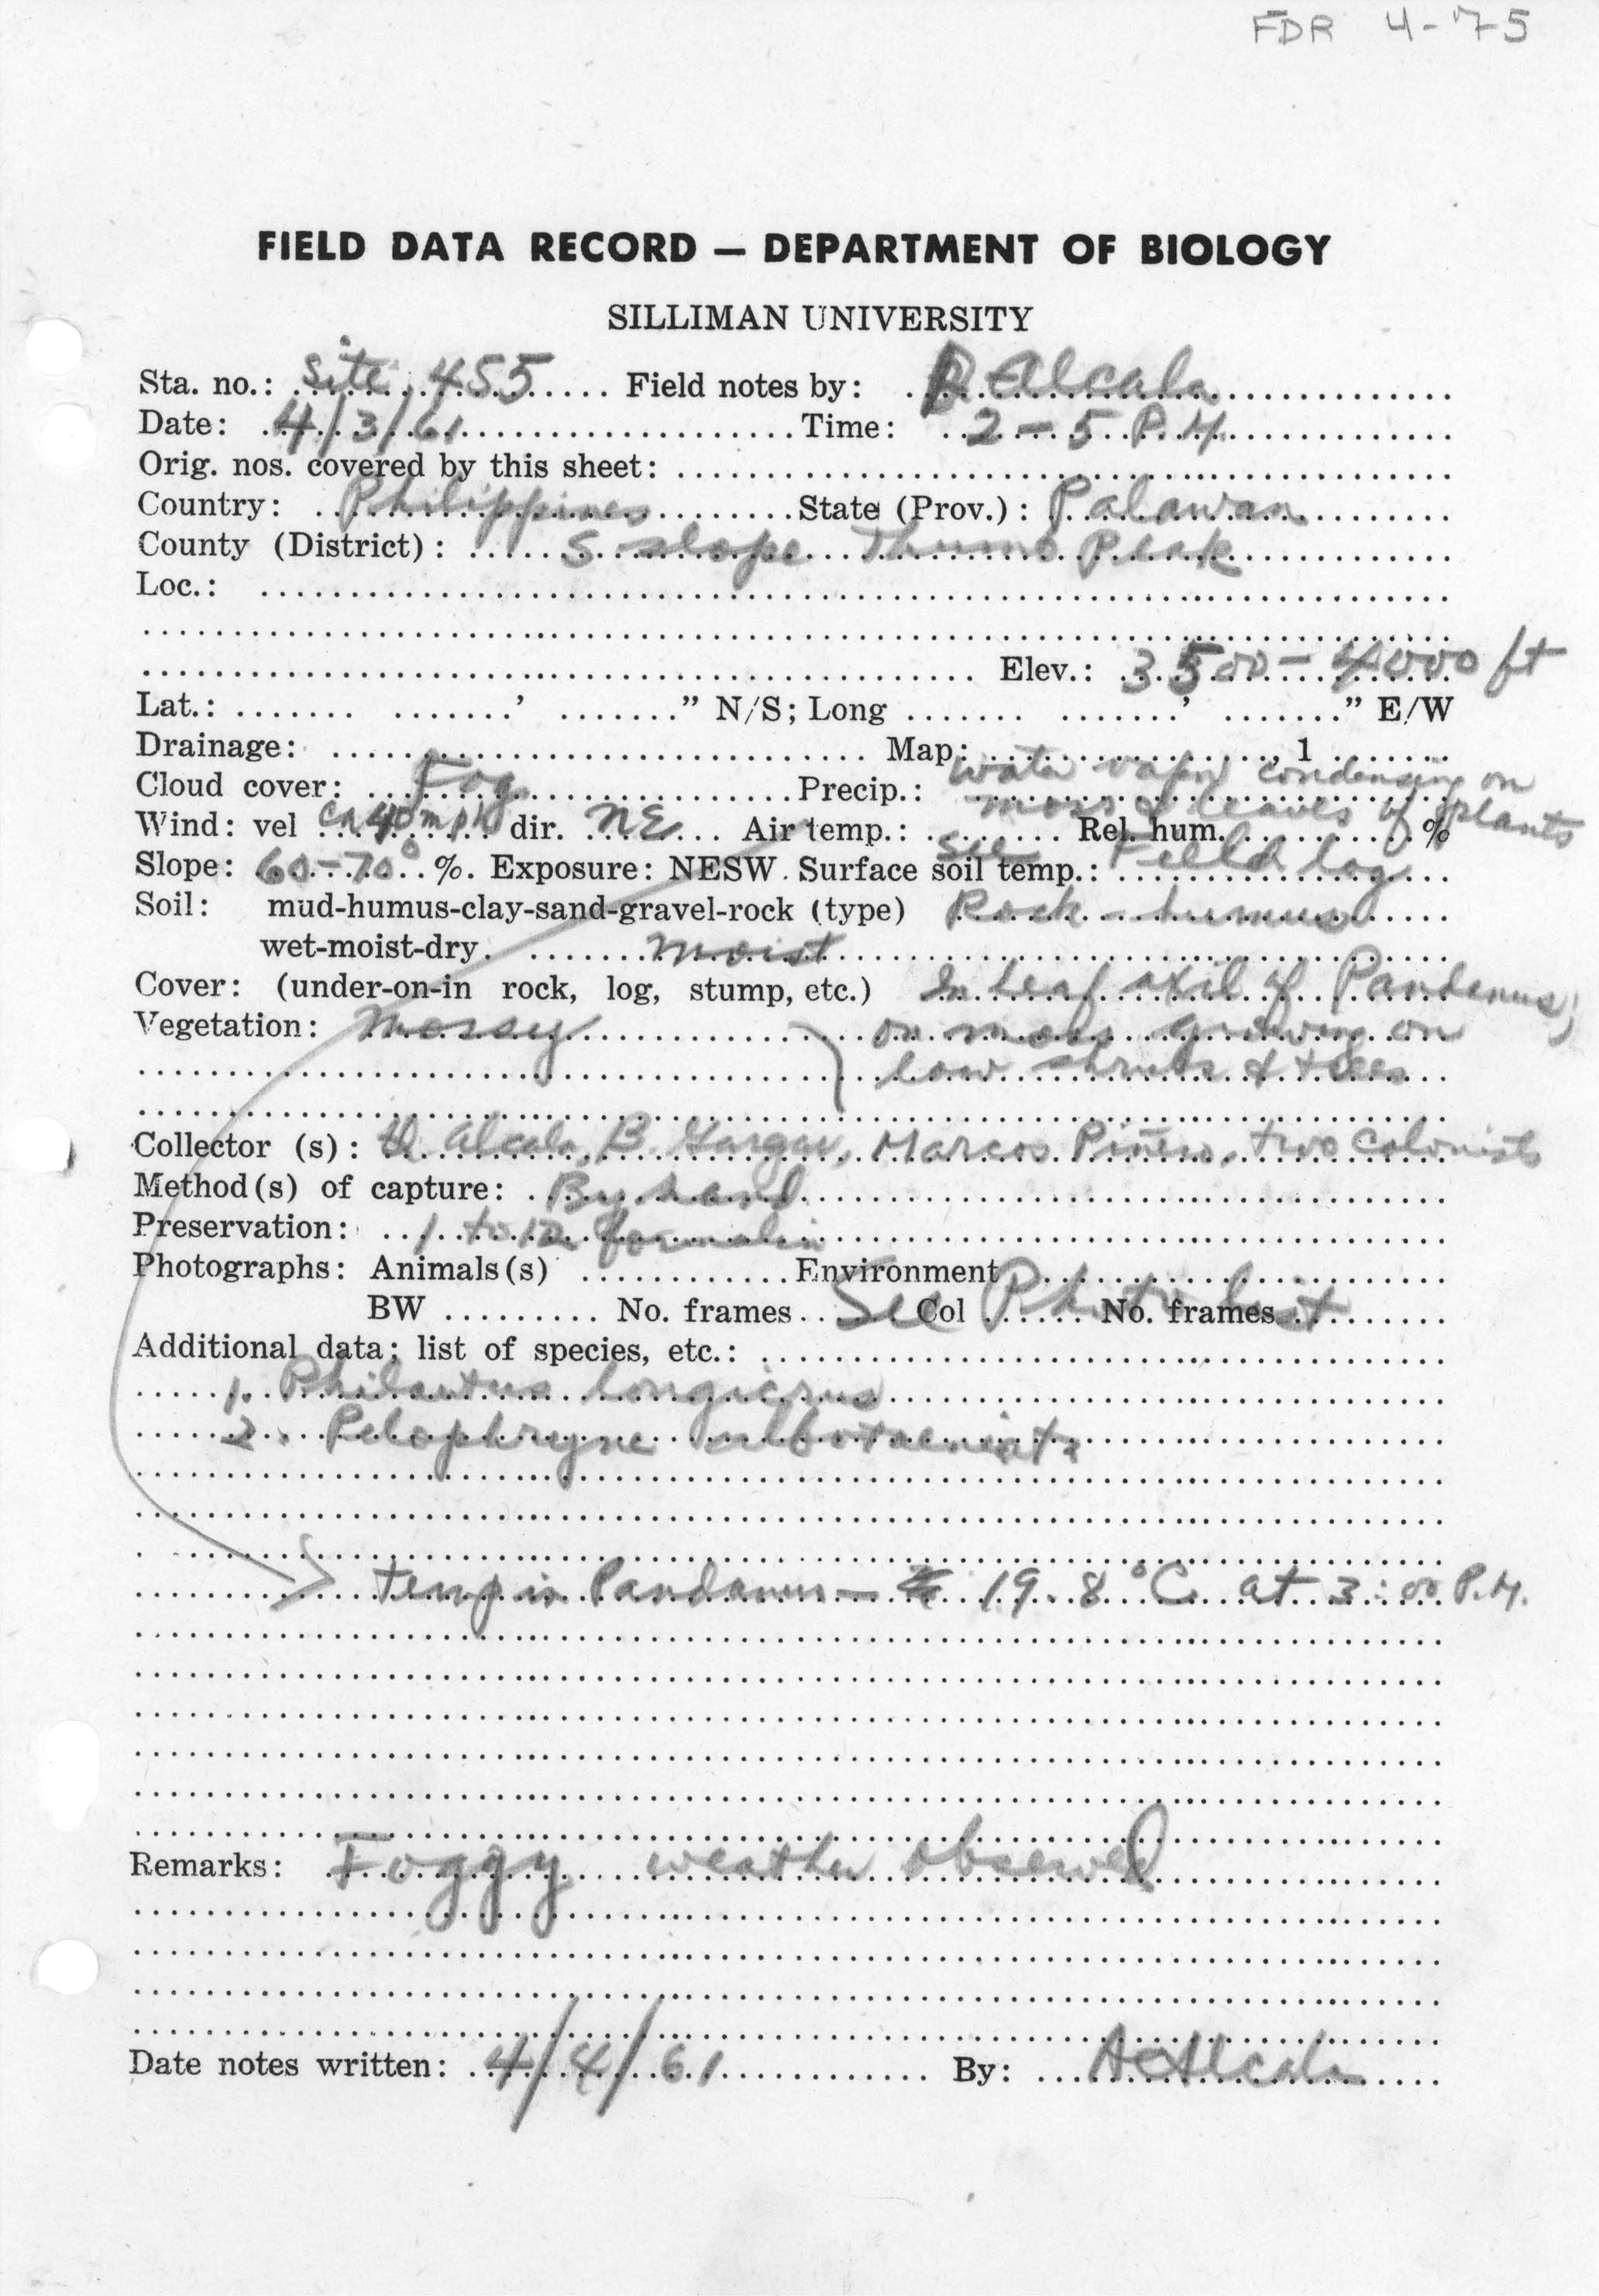 FDR 4-75
FIELD DATA RECORD — DEPARTMENT OF BIOLOGY
SILLIMAN UNIVERSITY
Sta. no.: Site 455 Field notes by: Alcala
Date: 4/3/61 Time: 2-5 P.M.
Orig. nos. covered by this sheet:
Country: Philippines State (Prov.): Palawan
County (District): S slope Thumb Peak
Loc.:
Elev.: 3500-4000 ft
Lat.: ' " N/S; Long ' " E/W
Drainage: Map: , 1
Cloud cover: Fog Precip.: water vapor condensing on
moss & leaves of plants
Wind: vel ca 40 mph dir. NE Air temp.: Rel. hum. %
See Field log
Slope: 60-70° %. Exposure: NESW. Surface soil temp.:
Soil: mud-humus-clay-sand-gravel-rock (type) Rock-humus
wet-moist-dry. moist
Cover: (under-on-in rock, log, stump, etc.) In leaf axil of Pandanus;
Vegetation: Mossy on moss growing on
low shrubs & trees
Collector (s): Alcala, B. Gargar, Marcos Piñero, two colonists
Method(s) of capture: By hand
Preservation: 1 to 12 formalin
Photographs: Animals(s) Environment
BW No. frames Col No. frames
See Photo list
Additional data; list of species, etc.:
1. Philautus longicrus
2. Pelophryne albotaeniata
Temp in Pandanus — 19.8°C at 3:00 P.M.
Remarks: Foggy weather observed
Date notes written: 4/4/61 By: A Alcala